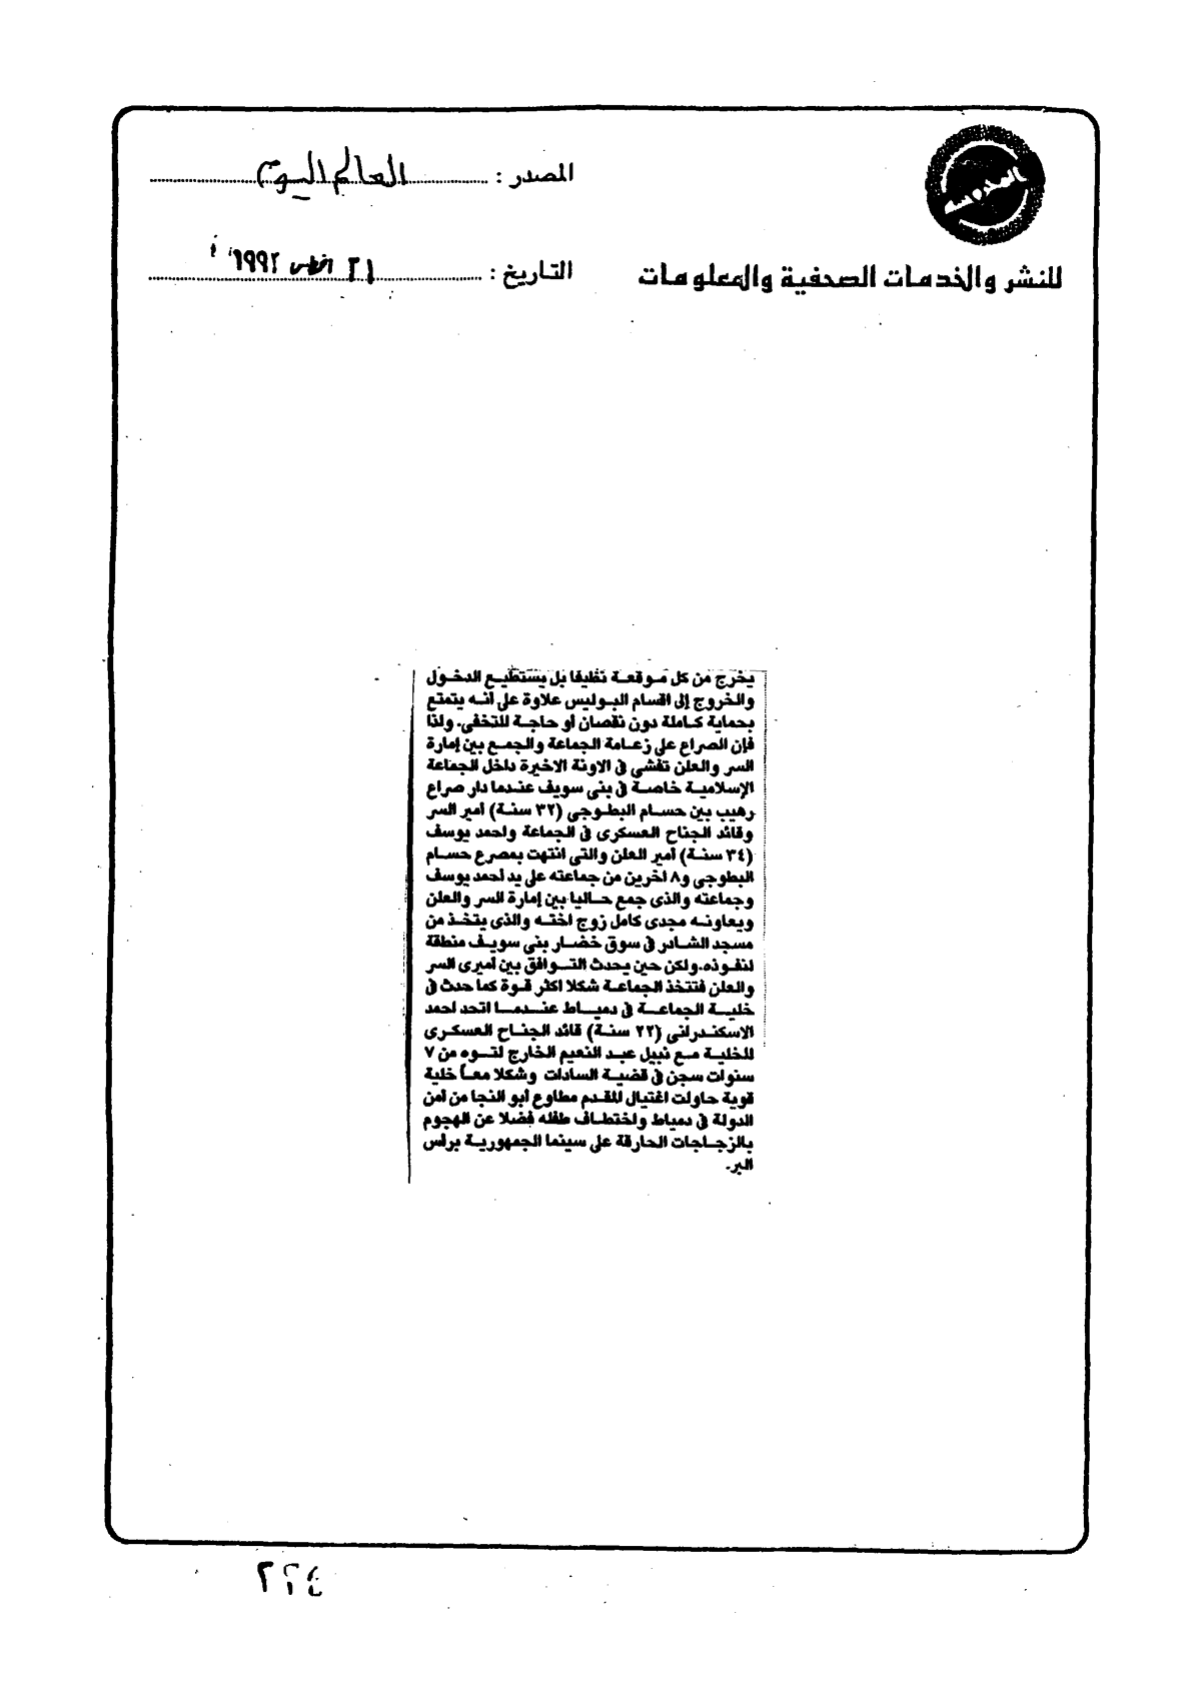 المصدر : العالم اليوم
التاريخ : ٢١ اغسطس ١٩٩٢
للنشر والخدمات الصحفية والمعلومات
يخرج من كل موقعة نظيفا بل يستطيع الدخول
والخروج إلى اقسام البوليس علاوة على أنه يتمتع
بحماية كاملة دون نقصان أو حاجة للتخفى. ولذا
فإن الصراع على زعامة الجماعة والجمع بين إمارة
السر والعلن تفشى فى الاونة الاخيرة داخل الجماعة
الإسلامية خاصة فى بنى سويف عندما دار صراع
رهيب بين حسام البطوجى (٣٢ سنة) أمير السر
وقائد الجناح العسكرى فى الجماعة واحمد يوسف
(٣٤ سنة) أمير العلن والتى انتهت بمصرع حسام
البطوجى و٨ اخرين من جماعته على يد أحمد يوسف
وجماعته والذى جمع حاليا بين إمارة السر والعلن
ويعاونه مجدى كامل زوج اخته والذى يتخذ من
مسجد الشادر فى سوق خضار بنى سويف منطقة
لنفوذه.ولكن حين يحدث التوافق بين أميرى السر
والعلن فتتخذ الجماعة شكلا اكثر قوة كما حدث فى
خلية الجماعة فى دمياط عندما اتحد احمد
الاسكندرانى (٢٢ سنة) قائد الجناح العسكرى
للخلية مع نبيل عبد النعيم الخارج لتوه من ٧
سنوات سجن فى قضية السادات وشكلا معاً خلية
قوية حاولت اغتيال المقدم مطاوع أبو النجا من أمن
الدولة فى دمياط واختطاف طفله فضلا عن الهجوم
بالزجاجات الحارقة على سينما الجمهورية برأس
البر.
٢٢٤